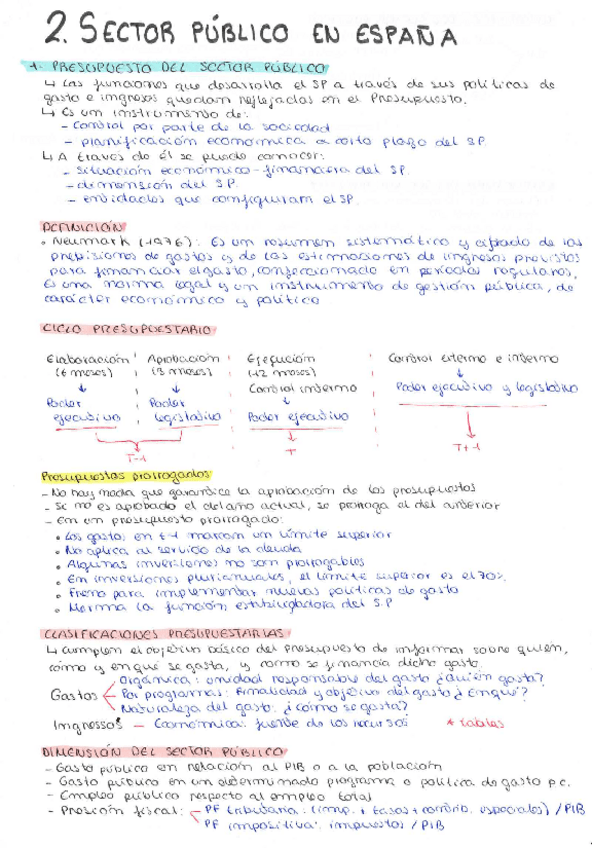 2. SECTOR PÚBLICO EN ESPAÑA
1. PRESUPUESTO DEL SECTOR PÚBLICO
↳ Las funciones que desarrolla el SP a través de sus políticas de
gasto e ingresos quedan reflejadas en el Presupuesto.
↳ Es un instrumento de:
- Control por parte de la sociedad
- planificación económica a corto plazo del SP
↳ A través de él se puede conocer:
- situación económico-financiera del SP.
- dimensión del SP.
- entidades que configuran el SP.
DEFINICIÓN
• Neumark (1976): Es un resumen sistemático y cifrado de las
previsiones de gastos y de las estimaciones de ingresos previstos
para financiar el gasto, confeccionado en períodos regulares.
Es una norma legal y un instrumento de gestión pública, de
carácter económico y político
CICLO PRESUPUESTARIO
Elaboración Aprobación Ejecución Control externo e interno
(6 meses) (3 meses) (12 meses) ↓
↓ ↓ Control interno Poder ejecutivo y legislativo
Poder Poder ↓
ejecutivo legislativo Poder ejecutivo
T-1 T T+1
Presupuestos prorrogados
- No hay nada que garantice la aprobación de los presupuestos
- Si no es aprobado el del año actual, se prorroga el del anterior
- En un presupuesto prorrogado:
• Los gastos en t-1 marcan un límite superior
• No aplica al servicio de la deuda
• Algunas inversiones no son prorrogables
• En inversiones plurianuales, el límite superior es el 70%.
• Freno para implementar nuevas políticas de gasto
• Merma la función estabilizadora del S.P
CLASIFICACIONES PRESUPUESTARIAS
↳ Cumplen el objetivo básico del presupuesto de informar sobre quién,
cómo y en qué se gasta, y como se financia dicho gasto.
Orgánica: unidad responsable del gasto ¿quién gasta?
Gastos Por programas: finalidad y objetivo del gasto ¿En qué?
Naturaleza del gasto: ¿cómo se gasta?
Ingresos - Económica: fuente de los recursos * tablas
DIMENSIÓN DEL SECTOR PÚBLICO
- Gasto público en relación al PIB o a la población
- Gasto público en un determinado programa o política de gasto p.c.
- Empleo público respecto al empleo total
- Presión fiscal: - PF tributaria: (imp. + tasas + contrib. especiales) / PIB
PF impositiva: impuestos / PIB